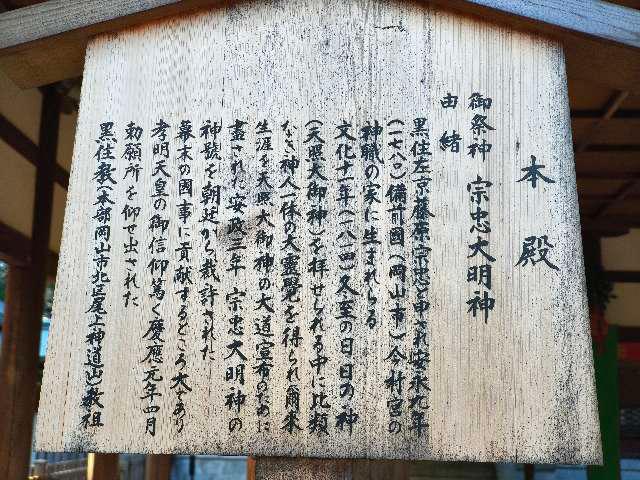 本殿
御祭神 宗忠大明神
由緒
黒住左京藤原宗忠と申され安永九年
(一七八〇)備前国(岡山市)今村宮の
神職の家に生まれらる
文化十一年(一八一四)冬至の日 日の神
(天照大御神)を拝せられる中に比類
なき神人一体の大霊覺を得られ爾来
生涯を天照大御神の大道宣布のために
盡された 安政三年 宗忠大明神の
神號を朝廷から裁許された
幕末の國事に貢献するところ大であり
孝明天皇の御信仰篤く慶應元年四月
勅願所を仰せ出された
黒住教(本部岡山市北区尾上神道山)教祖